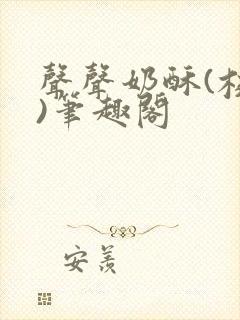 聲聲奶酥(校
)筆趣閣
安羨